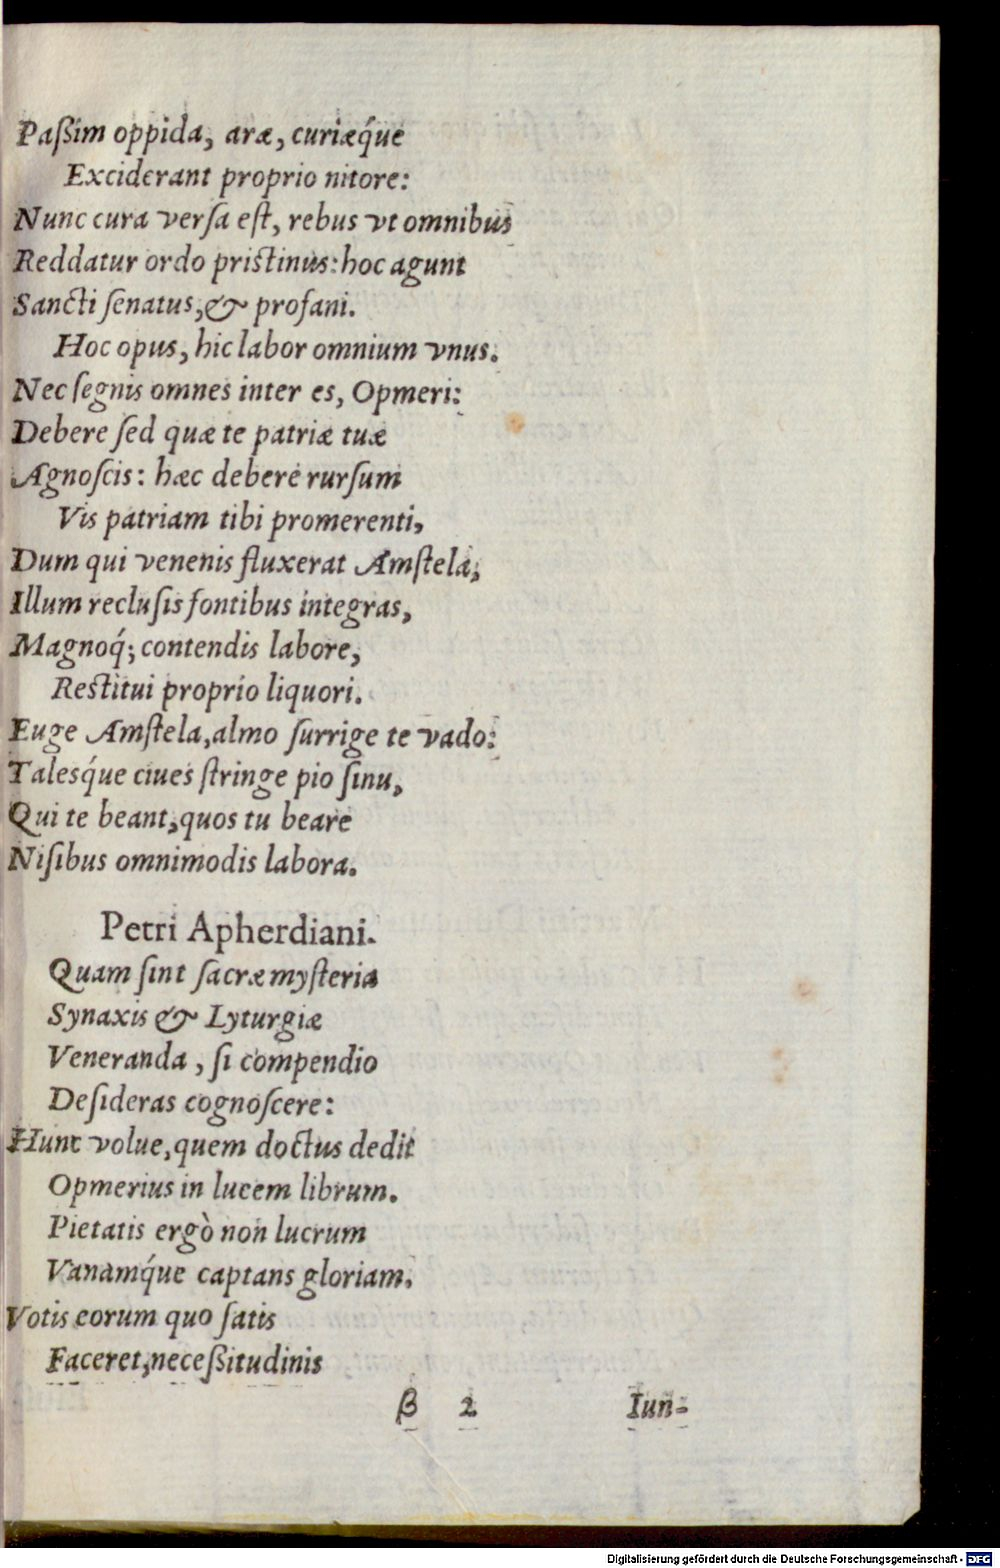 Paßim oppida, aræ, curiæq́ue
Exciderant proprio nitore:
Nunc cura versa est, rebus vt omnibus
Reddatur ordo pristinus: hoc agunt
Sancti senatus, & profani.
Hoc opus, hic labor omnium vnus.
Nec segnis omnes inter es, Opmeri:
Debere sed quæ te patriæ tuæ
Agnoscis: hæc debere rursum
Vis patriam tibi promerenti,
Dum qui venenis fluxerat Amstela,
Illum reclusis fontibus integras,
Magnoq́; contendis labore,
Restitui proprio liquori.
Euge Amstela, almo surrige te vado:
Talesq́ue ciues stringe pio sinu,
Qui te beant, quos tu beare
Nisibus omnimodis labora.
Petri Apherdiani.
Quam sint sacræ mysteria
Synaxis & Lyturgiæ
Veneranda, si compendio
Desideras cognoscere:
Hunc volue, quem doctus dedit
Opmerius in lucem librum.
Pietatis ergò non lucrum
Vanamq́ue captans gloriam.
Votis eorum quo satis
Faceret, neceßitudinis
β 2 Iun-
Digitalisierung gefördert durch die Deutsche Forschungsgemeinschaft - DFG